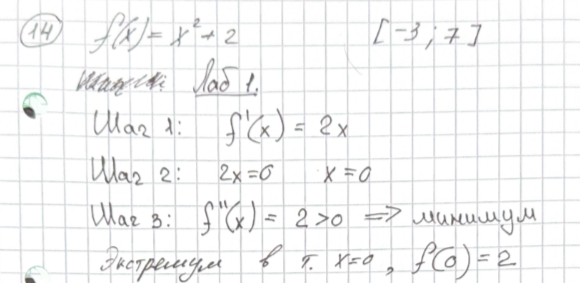 14 f(x) = x² + 2 [-3; 7]
Лаб 1.
Шаг 1: f'(x) = 2x
Шаг 2: 2x=0 x=0
Шаг 3: f''(x) = 2>0 => минимум
Экстремум в т. x=0, f(0)=2